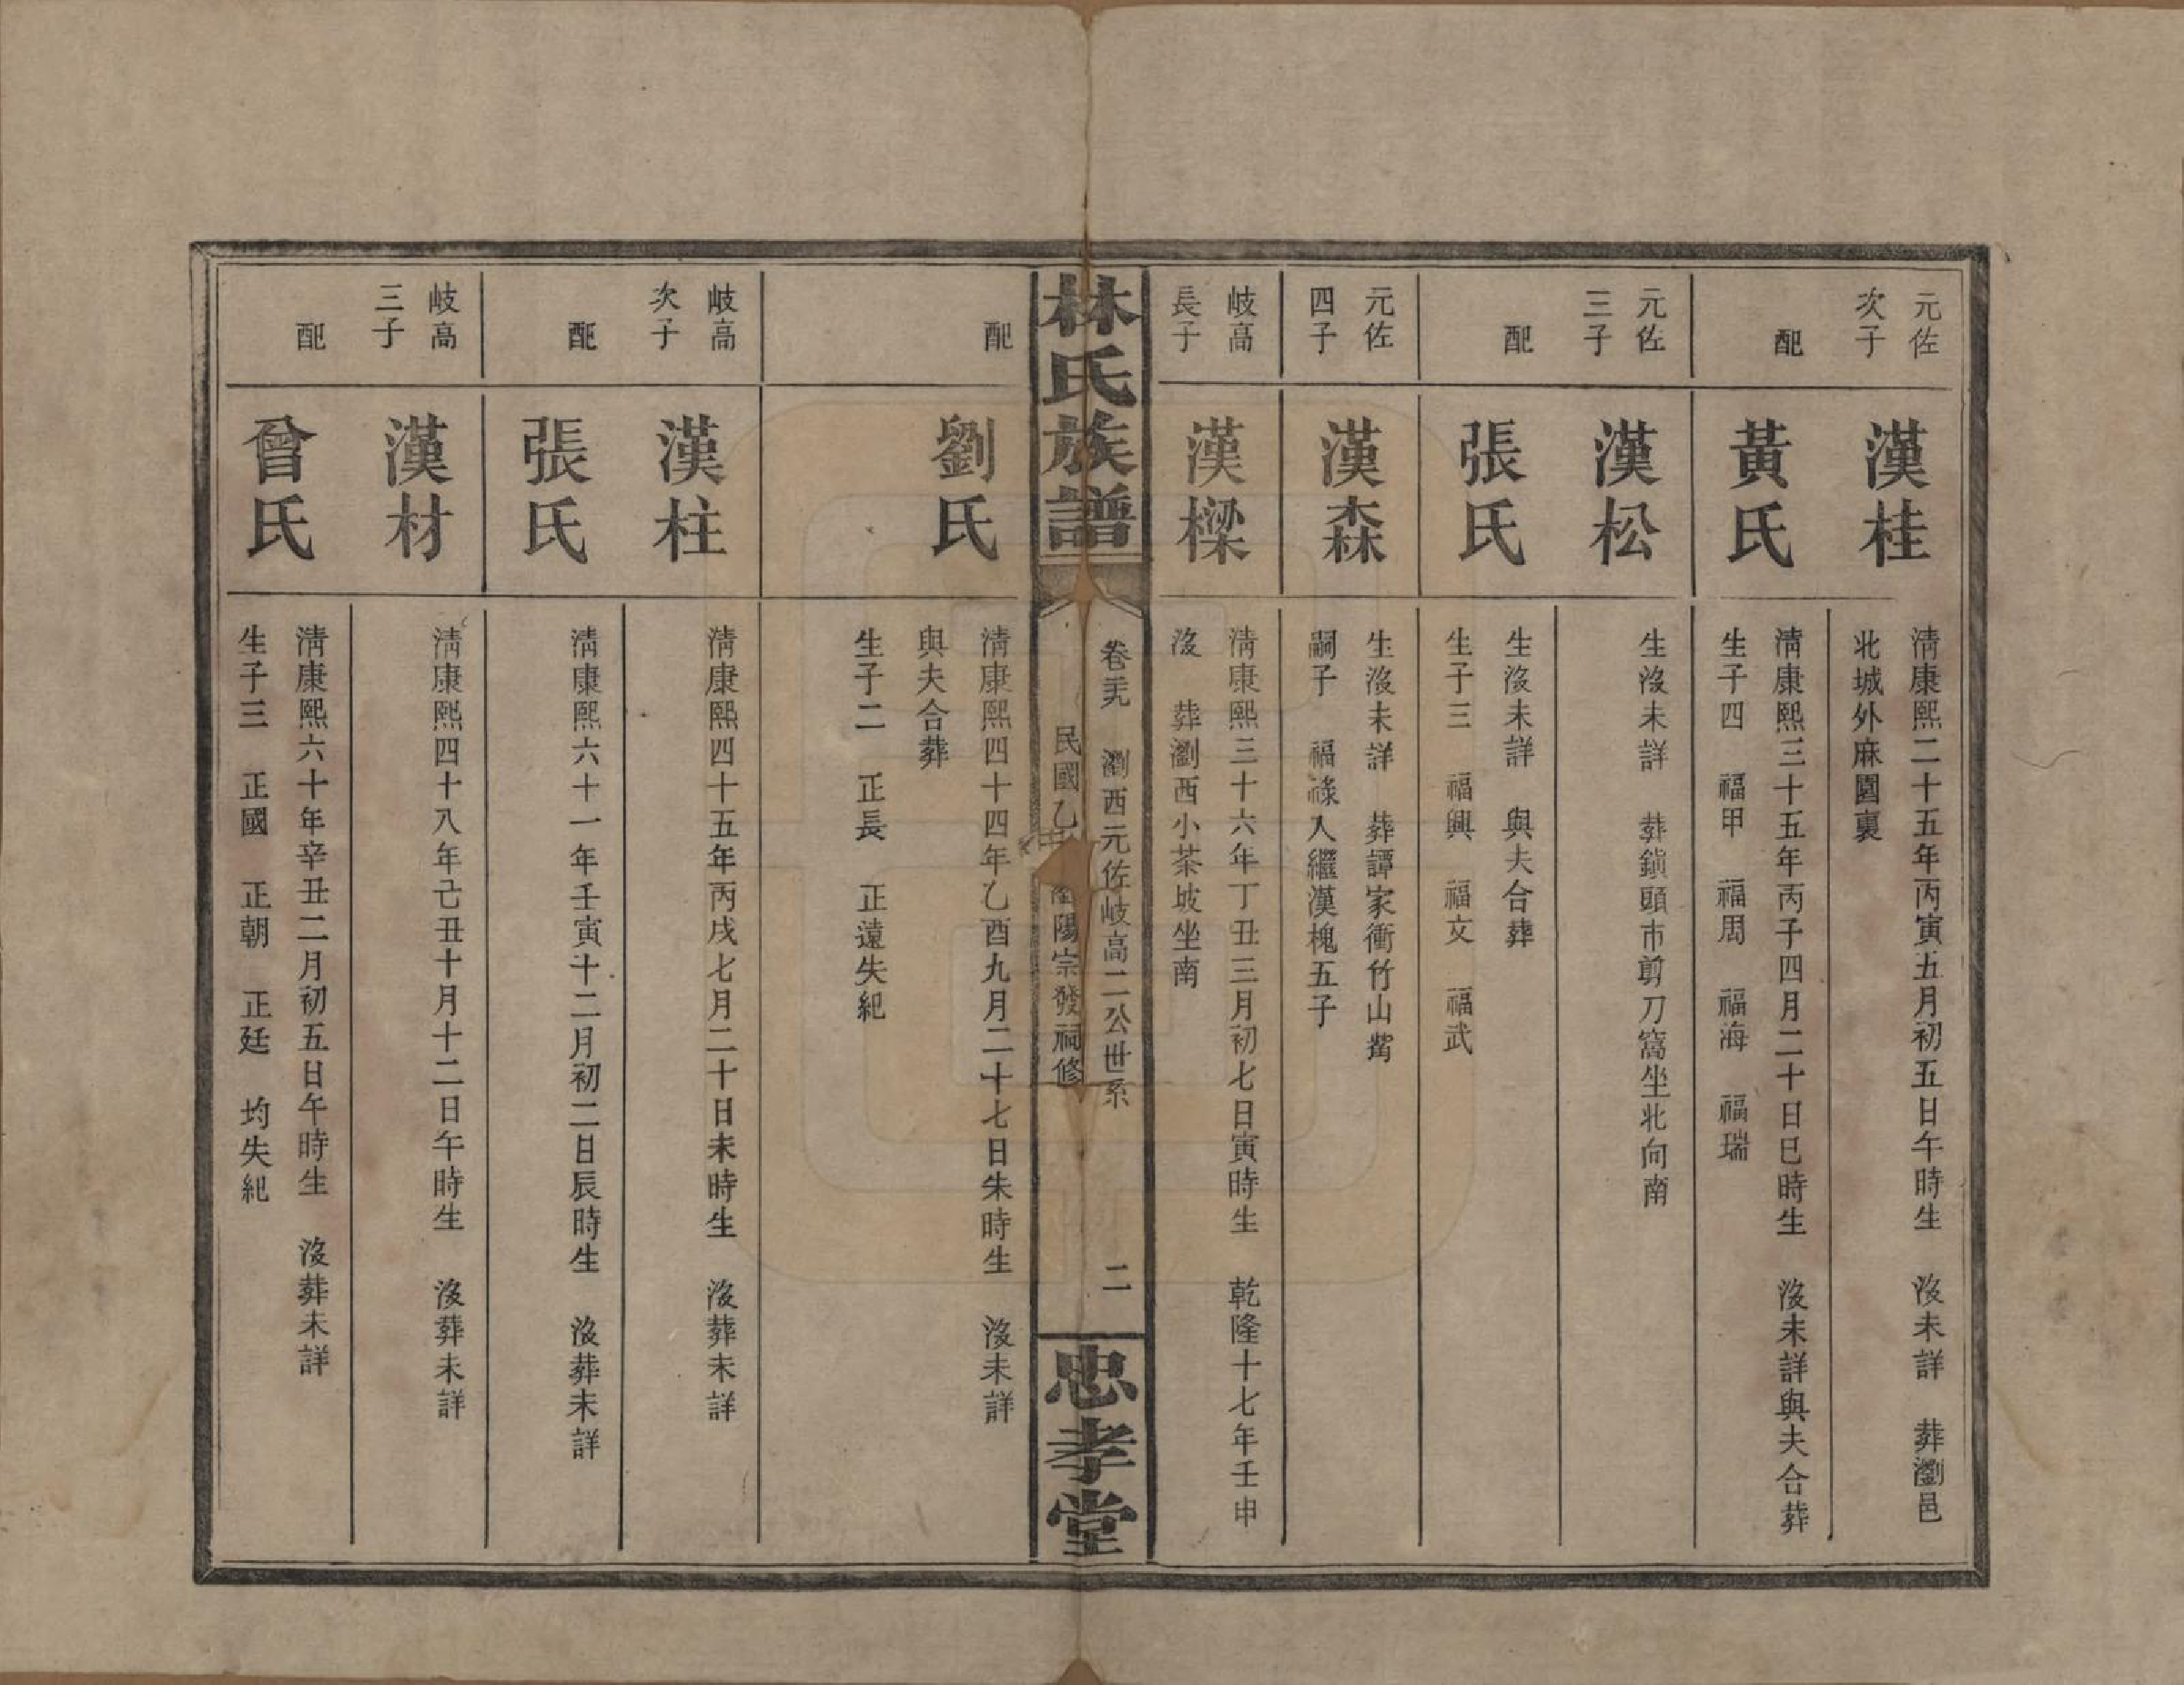 元佐
次子
漢桂
清康熙二十五年丙寅五月初五日午時生　沒未詳　葬瀏邑
北城外麻園裏
配
黃氏
清康熙三十五年丙子四月二十日巳時生　沒未詳與夫合葬
生子四　福甲　福周　福海　福瑞
元佐
三子
漢松
生沒未詳　葬鎖頭市剪刀窩坐北向南
配
張氏
生沒未詳　與夫合葬
生子三　福興　福文　福武
元佐
四子
漢森
生沒未詳　葬譚家衝竹山嘴
嗣子　福祿入繼漢槐五子
岐高
長子
漢樑
清康熙三十六年丁丑三月初七日寅時生　乾隆十七年壬申
沒　葬瀏西小茶坡坐南
林氏族譜
卷三九　瀏西元佐岐高二公世系　二
民國乙　瀏陽宗發祠修
忠孝堂
配
劉氏
清康熙四十四年乙酉九月二十七日朱時生　沒未詳
與夫合葬
生子二　正長　正遠失紀
岐高
次子
漢柱
清康熙四十五年丙戌七月二十日未時生　沒葬未詳
配
張氏
清康熙六十一年壬寅十二月初二日辰時生　沒葬未詳
岐高
三子
漢材
清康熙四十八年己丑十月十二日午時生　沒葬未詳
配
曾氏
清康熙六十年辛丑二月初五日午時生　沒葬未詳
生子三　正國　正朝　正廷　均失紀